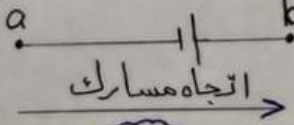 a b
اتجاه مسارك